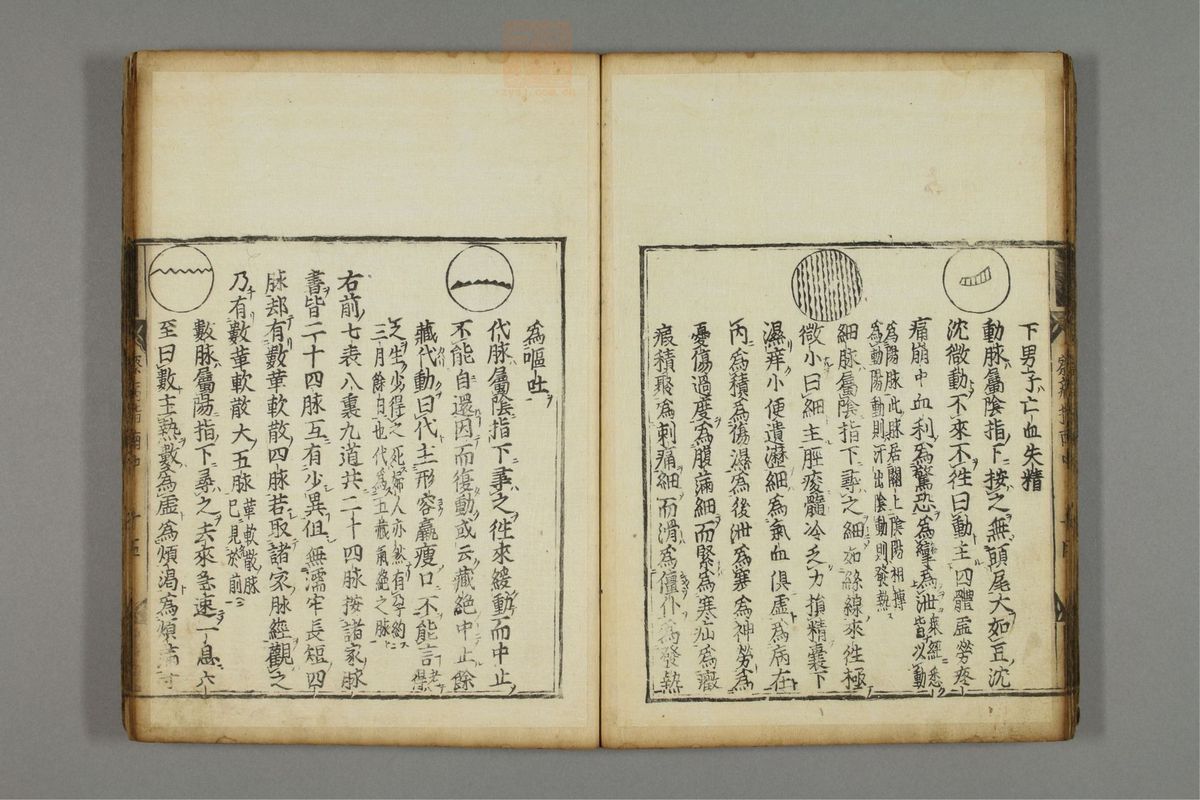 下男子亡血失精
動脉屬陰指下按之無頭尾大如豆沈
沈微動不來不徃曰動主四體虛勞疼
痛崩中血利為驚恐為攣為泄衆經悉皆以動
為陽脉此脉居關上陰陽相搏
為動陽動則汗出陰動則發熱
細脉屬陰指下尋之細如絲線來徃極
微小曰細主脛痠髓冷乏力損精囊下
濕痒小便遺瀝細為氣血俱虛為病在
内為積為傷濕為後泄為寒為神勞為
憂傷過度為腹滿細而緊為寒疝為癥
瘕積聚為刺痛細而滑為僵仆為發熱
為嘔吐
代脉屬陰指下尋之徃來緩動而中止
不能自還因而復動或云藏絶中止餘
藏代動曰代主形容羸瘦口不能言老得
之生少得之死婦人亦然有孕約
三月餘日也代為五藏氣絶之脉
右前七表八裏九道共二十四脉按諸家脉
書皆二十四脉互有少異但無濡牢長短四
脉却有數革軟散四脉若取諸家脉經觀之
乃有數革軟散大五脉革軟散脉已見於前
數脉屬陽指下尋之去來急速一息六
至曰數主熱數為虛為煩渴為煩滿